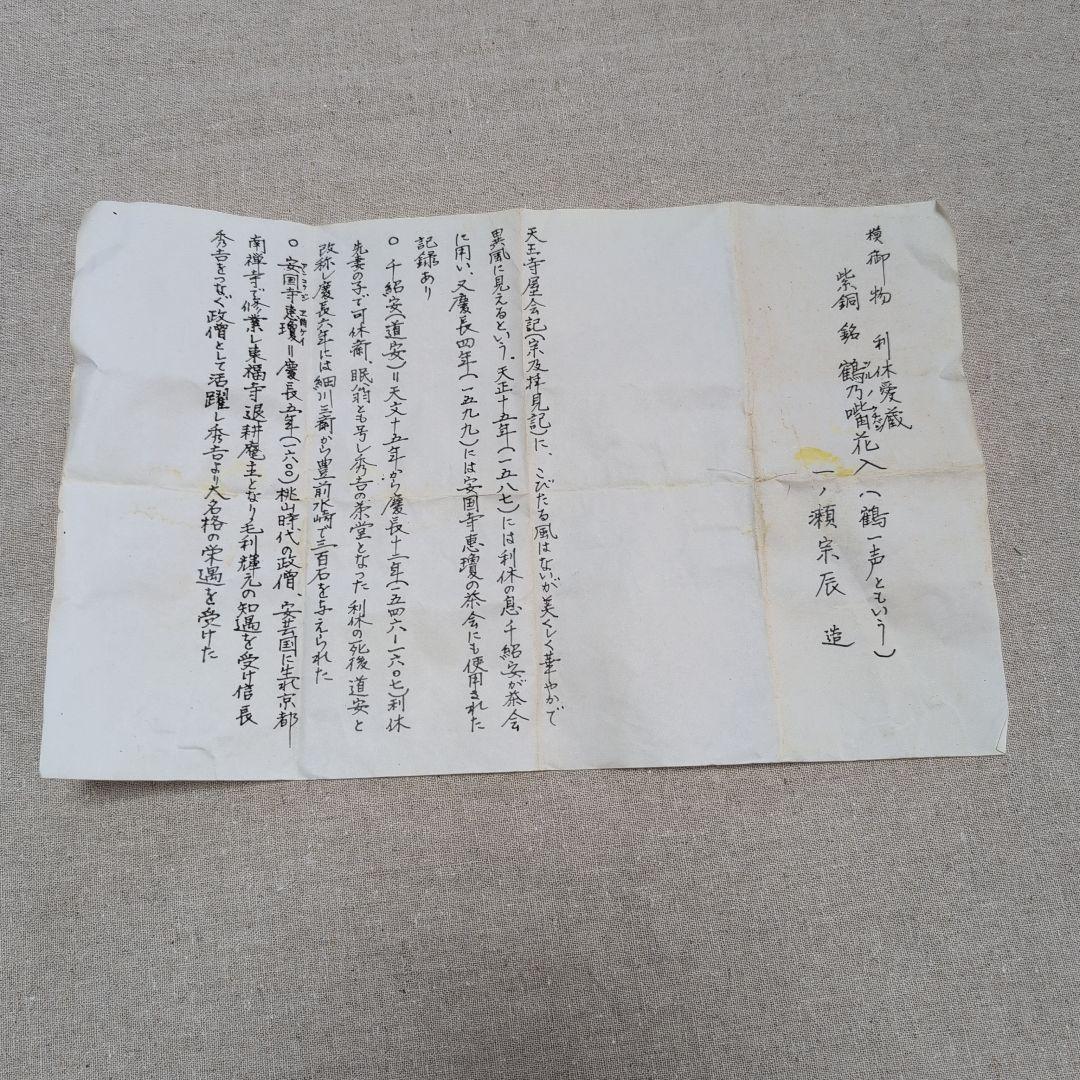 模御物 利休愛蔵
紫銅 銘 鶴乃嘴花入(鶴一声ともいう)
ツルノハシ
一ノ瀬宗辰 造
天王寺屋会記(宗及拝見記)に、こびたる風はないが美くしく華やかで
異風に見えるという。天正十五年(一五八七)には利休の息千紹安が茶会
に用い、又慶長四年(一五九九)には安国寺恵瓊の茶会にも使用された
記録あり
○ 千紹安(道安)=天文十五年から慶長十二年(一五四六ー一六〇七)利休
先妻の子で可休斎、眠翁とも号し秀吉の茶堂となった 利休の死後 道安と
改称し慶長六年には細川三斎から豊前水崎で三百石を与えられた
○ 安国寺恵瓊=慶長五年(一六〇〇)桃山時代の政僧、安芸国に生れ京都
アンコクジ エケイ
南禅寺で修業し東福寺退耕庵主となり毛利輝元の知遇を受け信長
秀吉をつなぐ政僧として活躍し秀吉より大名格の栄遇を受けた